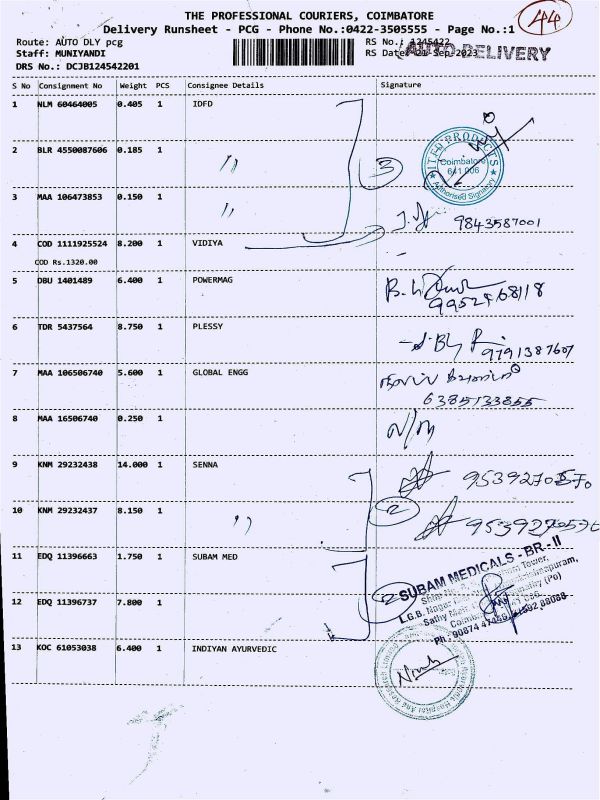 THE PROFESSIONAL COURIERS, COIMBATORE
44
Delivery Runsheet - PCG - Phone No.:0422-3505555 - Page No.:1
Route: AUTO DLY pcg
RS No.: 1245422
AUTO DELIVERY
Staff: MUNIYANDI
RS Date: 21-Sep-2023
DRS No.: DCJB124542201
S No Consignment No Weight PCS Consignee Details Signature
1 NLM 60464005 0.405 1 IDFD
2 BLR 4550087606 0.185 1 〃
3
Coimbatore
641 006
Authorised Signatory
3 MAA 106473853 0.150 1 〃
9843587001
4 COD 1111925524 8.200 1 VIDIYA
COD Rs.1320.00
5 DBU 1401489 6.400 1 POWERMAG
6 TDR 5437564 8.750 1 PLESSY
9791387607
7 MAA 106506740 5.600 1 GLOBAL ENGG
6385133855
8 MAA 16506740 0.250 1
9 KNM 29232438 14.000 1 SENNA
9539270570
10 KNM 29232437 8.150 1 〃
2
11 EDQ 11396663 1.750 1 SUBAM MED
SUBAM MEDICALS - BR - II
2
12 EDQ 11396737 7.800 1
L.G.B. Nagar
13 KOC 61053038 6.400 1 INDIYAN AYURVEDIC